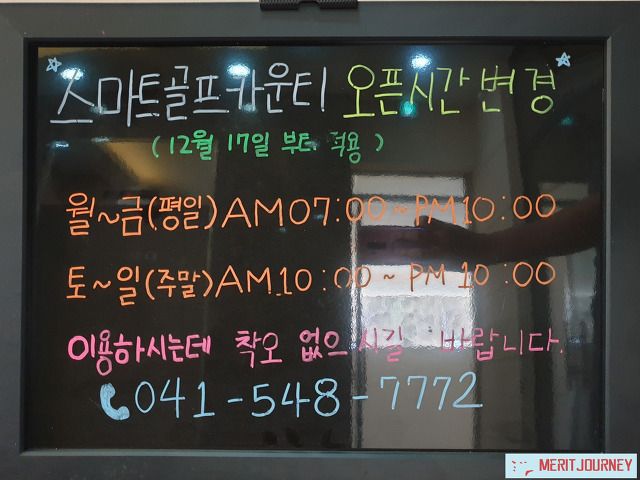 스마트골프카운티 오픈시간변경
(12월 17일 부터 적용)
월~금(평일)AM07:00~PM10:00
토~일(주말)AM.10:00~PM 10:00
이용하시는데 착오 없으시길 바랍니다.
041-548-7772
MERITJOURNEY